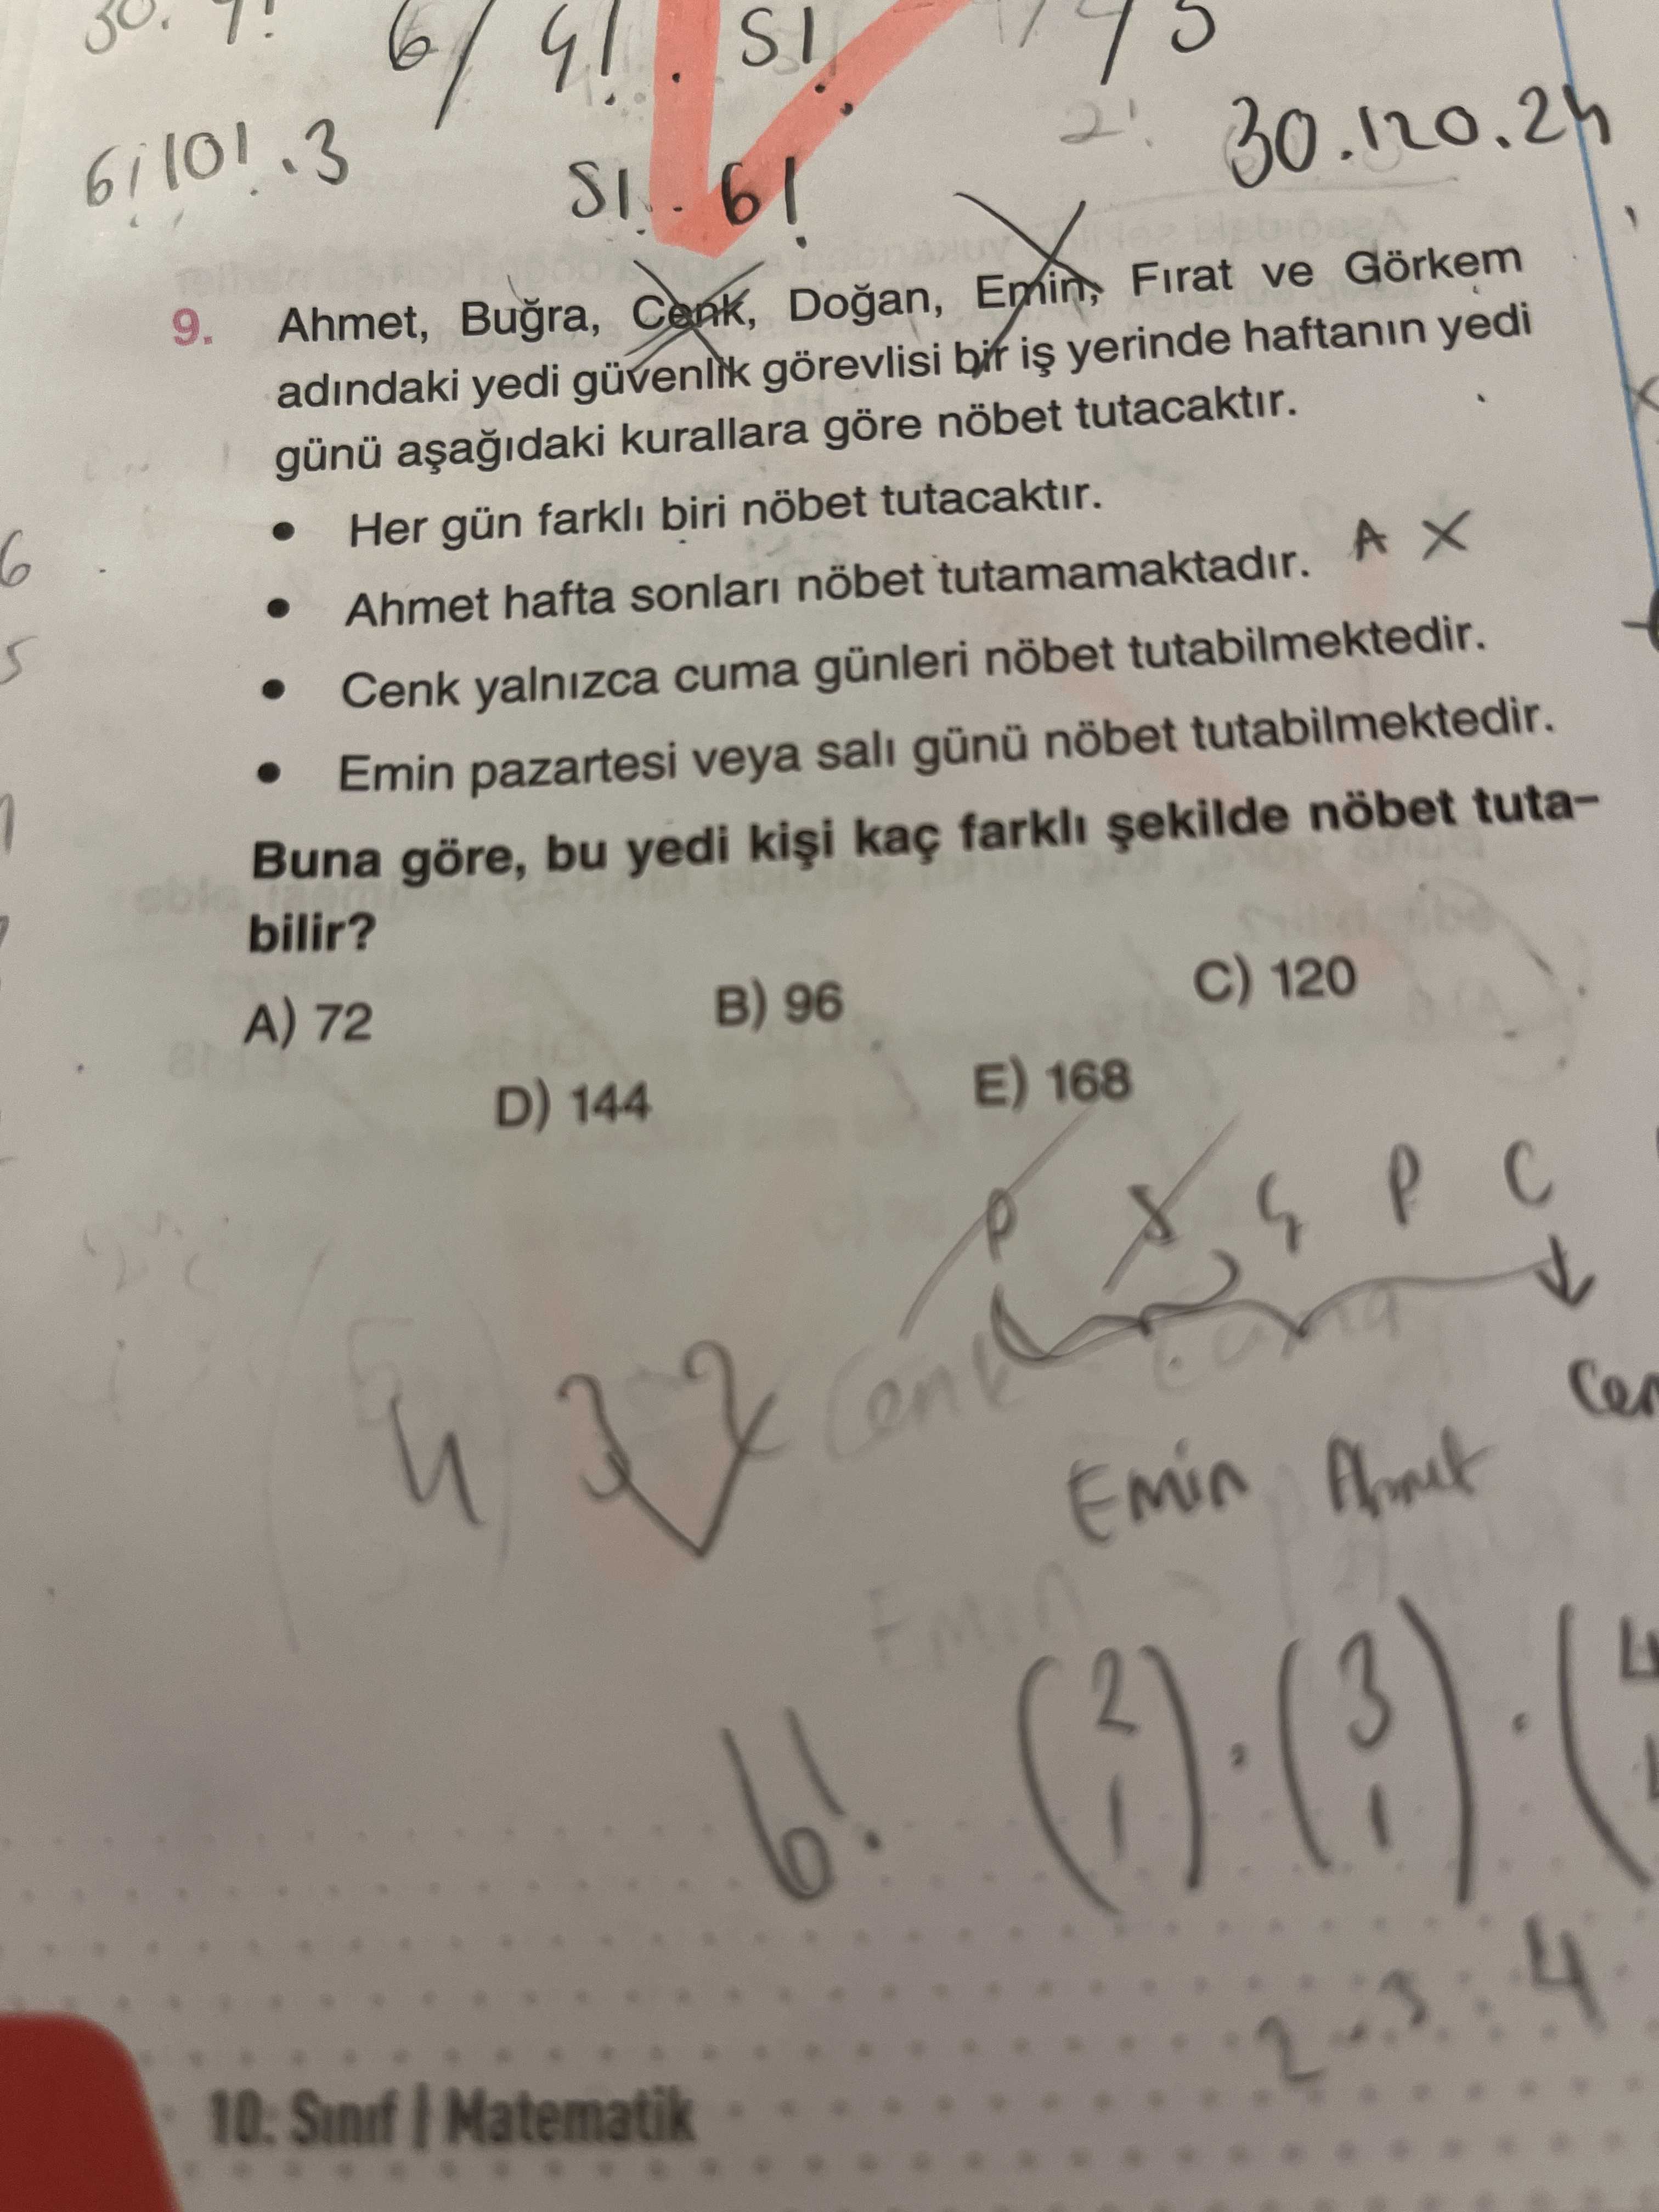 6/ 4! . 5!
30.120.24
6! 10! .3
5! . 6!
9. Ahmet, Buğra, Cenk, Doğan, Emin, Fırat ve Görkem
adındaki yedi güvenlik görevlisi bir iş yerinde haftanın yedi
günü aşağıdaki kurallara göre nöbet tutacaktır.
• Her gün farklı biri nöbet tutacaktır.
• Ahmet hafta sonları nöbet tutamamaktadır. A X
• Cenk yalnızca cuma günleri nöbet tutabilmektedir.
• Emin pazartesi veya salı günü nöbet tutabilmektedir.
Buna göre, bu yedi kişi kaç farklı şekilde nöbet tuta-
bilir?
A) 72 B) 96 C) 120
D) 144 E) 168
P S Ç P C
4 3 2 Cenk
Emin Ahmet
Emin
6! (2 1) . (3 1) . (4
2 . 3 . 4
10. Sınıf | Matematik